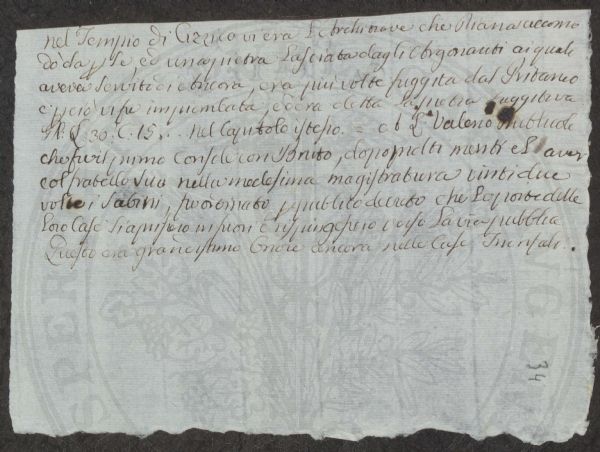 nel Tempio di Cizico vi era l'Architrave che Diana accomo
dò da p se, ed una pietra lasciata dagli Argonauti ai quali
aveva servito di ancora, era più volte fuggita dal Pritaneo
e p ciò vi fu impiombata, ed era detta la pietra fuggitiva
L. 30. C. 15. nel Capitolo istesso. = a L. Valerio Publicola
che fu il primo Console con Bruto, dopo molti meriti e l'aver
col fratello suo nella medesima magistratura vinti due
volte i Sabini, fu ornato p publico decreto che le porte delle
loro Case si aprissero in fuori e si spingessero verso la via pubblica
Questo era grandissimo Onore ancora nelle Case Trionfali.
34